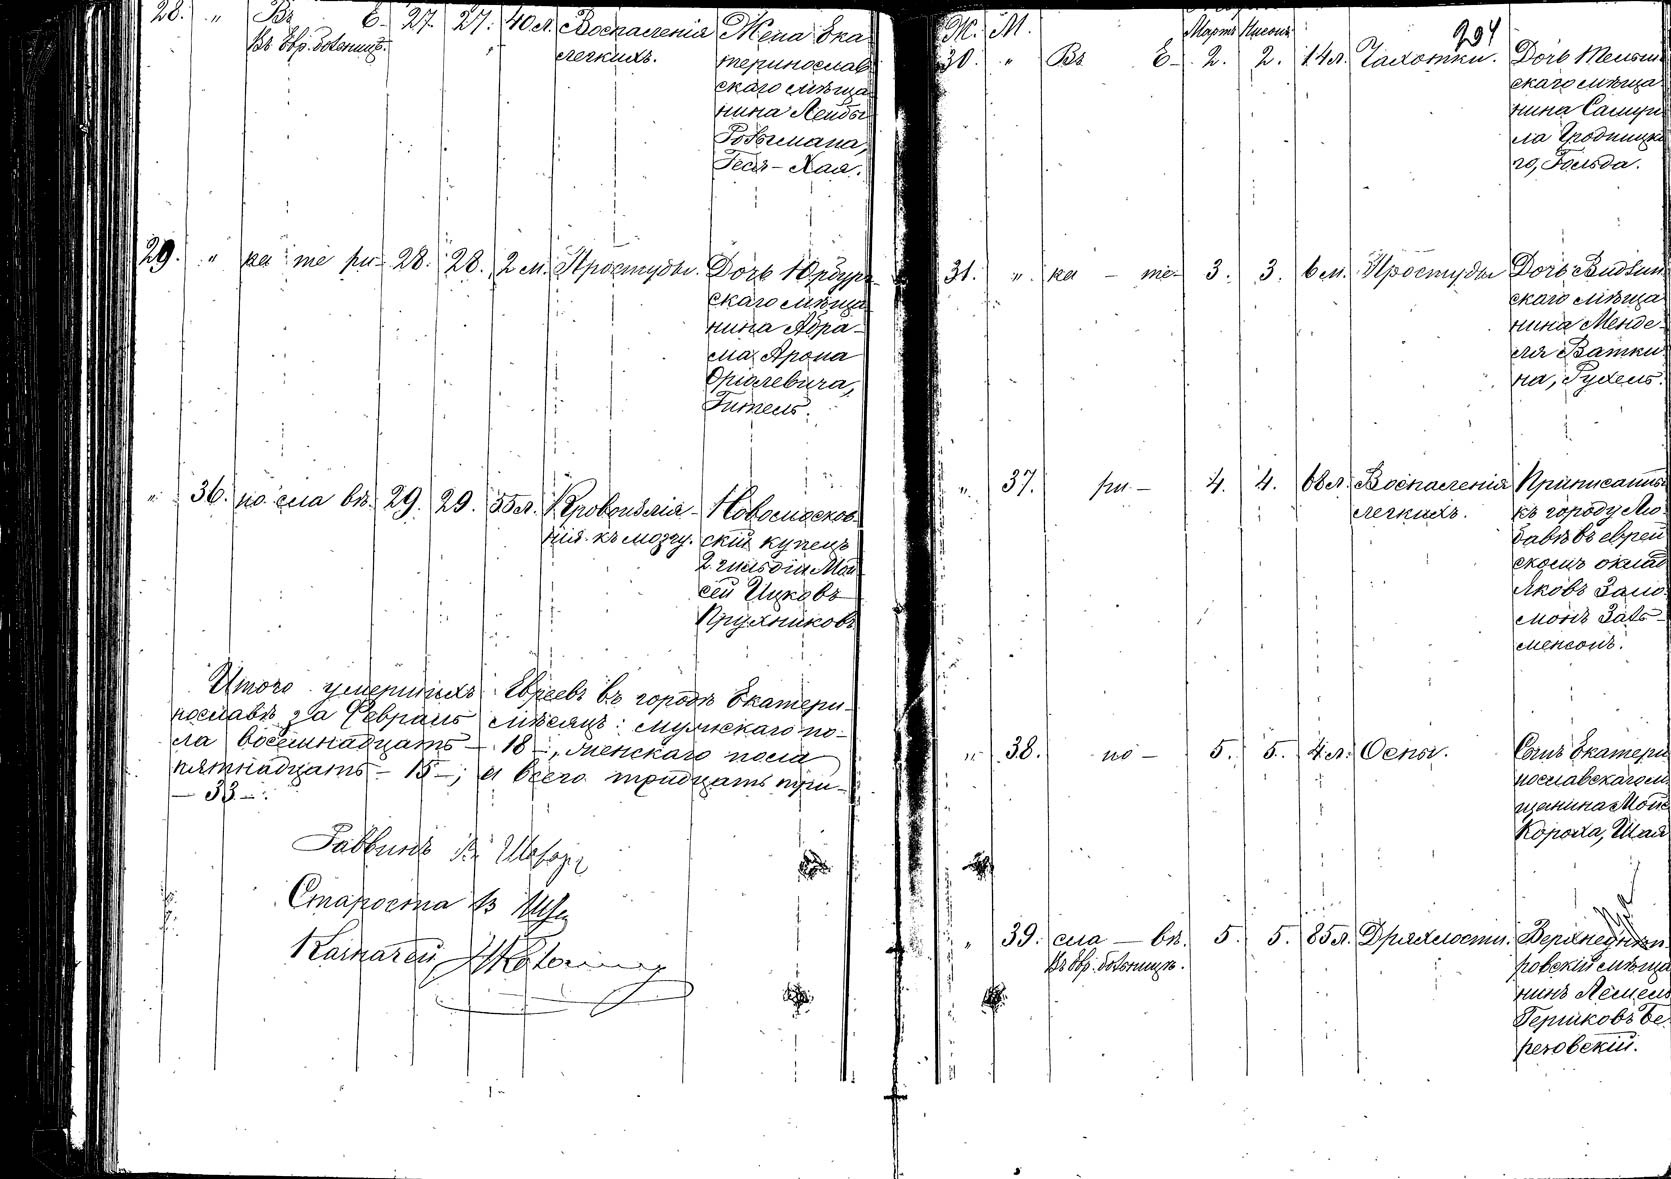 28. " Въ Е- 27. 27. 40 л. Воспаленія Жена Ека-
Въ Евр. больниц. легкихъ. теринослав
скаго мѣща
нина Лейбы
Гесь-Хая.
29. " ка те ри- 28. 28. 2 м. Простуды. Дочь Юрбург
скаго мѣща
нина Абра-
ма Арона
Гитель.
" 36. но сла вѣ. 29. 29. 55 л. Кровоизлія- Новомосков-
нія къ мозгу. скій купецъ
2 гильдіи Мои
сей Ицковъ
Пружниковъ
Итого умершихъ Евреевъ въ городѣ Екатери-
нославѣ за Февраль мѣсяцъ: мужскаго по-
ла восемнадцать - 18 -, женскаго пола
пятнадцать - 15 -; а всего тридцать три-
- 33 -.
Раввинъ
Староста
Казначей
204
Ж. М. Мартъ Нисонъ
30. " Въ Е- 2. 2. 14 л. Чахотки. Дочь
скаго мѣща
нина Самуи
ла Гродницка
го, Гольда.
31. " ка - те- 3. 3. 6 м. Простуды Дочь
скаго мѣща
нина Менде-
ля Ватки
на, Рухель.
" 37. ри- 4. 4. 68 л. Воспаленія Приписанны
легкихъ. къ городу Лю
бавѣ въ еврей
скомъ оклад
Яковъ Зало
монъ
менсонъ.
" 38. но- 5. 5. 4 л. Оспы. Сынъ Екатери
нославскаго м
щанина Мойс
Короха, Шая
" 39. сла - вѣ. 5. 5. 85 л. Дряхлости. Верхнеднѣп-
Въ Евр. больницѣ. ровскій мѣща
нинъ Лемель
Гершковъ Бе-
резовскій.